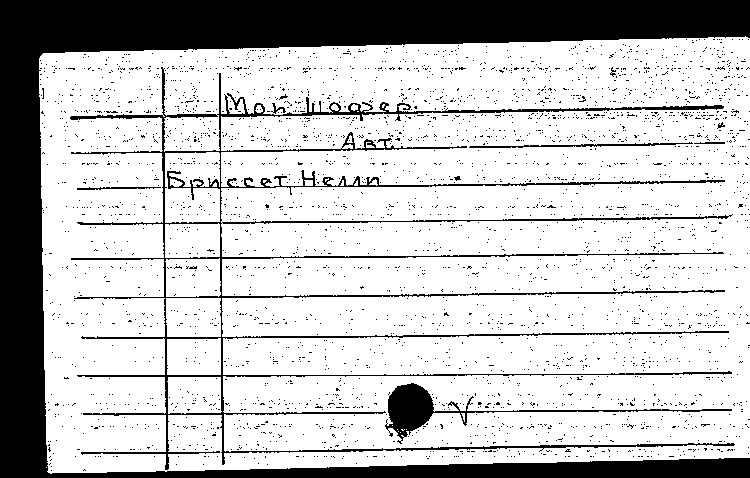 Мой шофер.
Авт.
Бриссет, Нелли
V